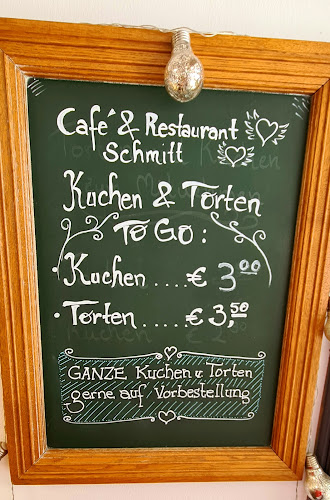 Café & Restaurant
Schmitt
Kuchen & Torten
To Go:
· Kuchen .... € 3⁰⁰
· Torten ..... € 3,⁵⁰
GANZE Kuchen u. Torten
gerne auf Vorbestellung